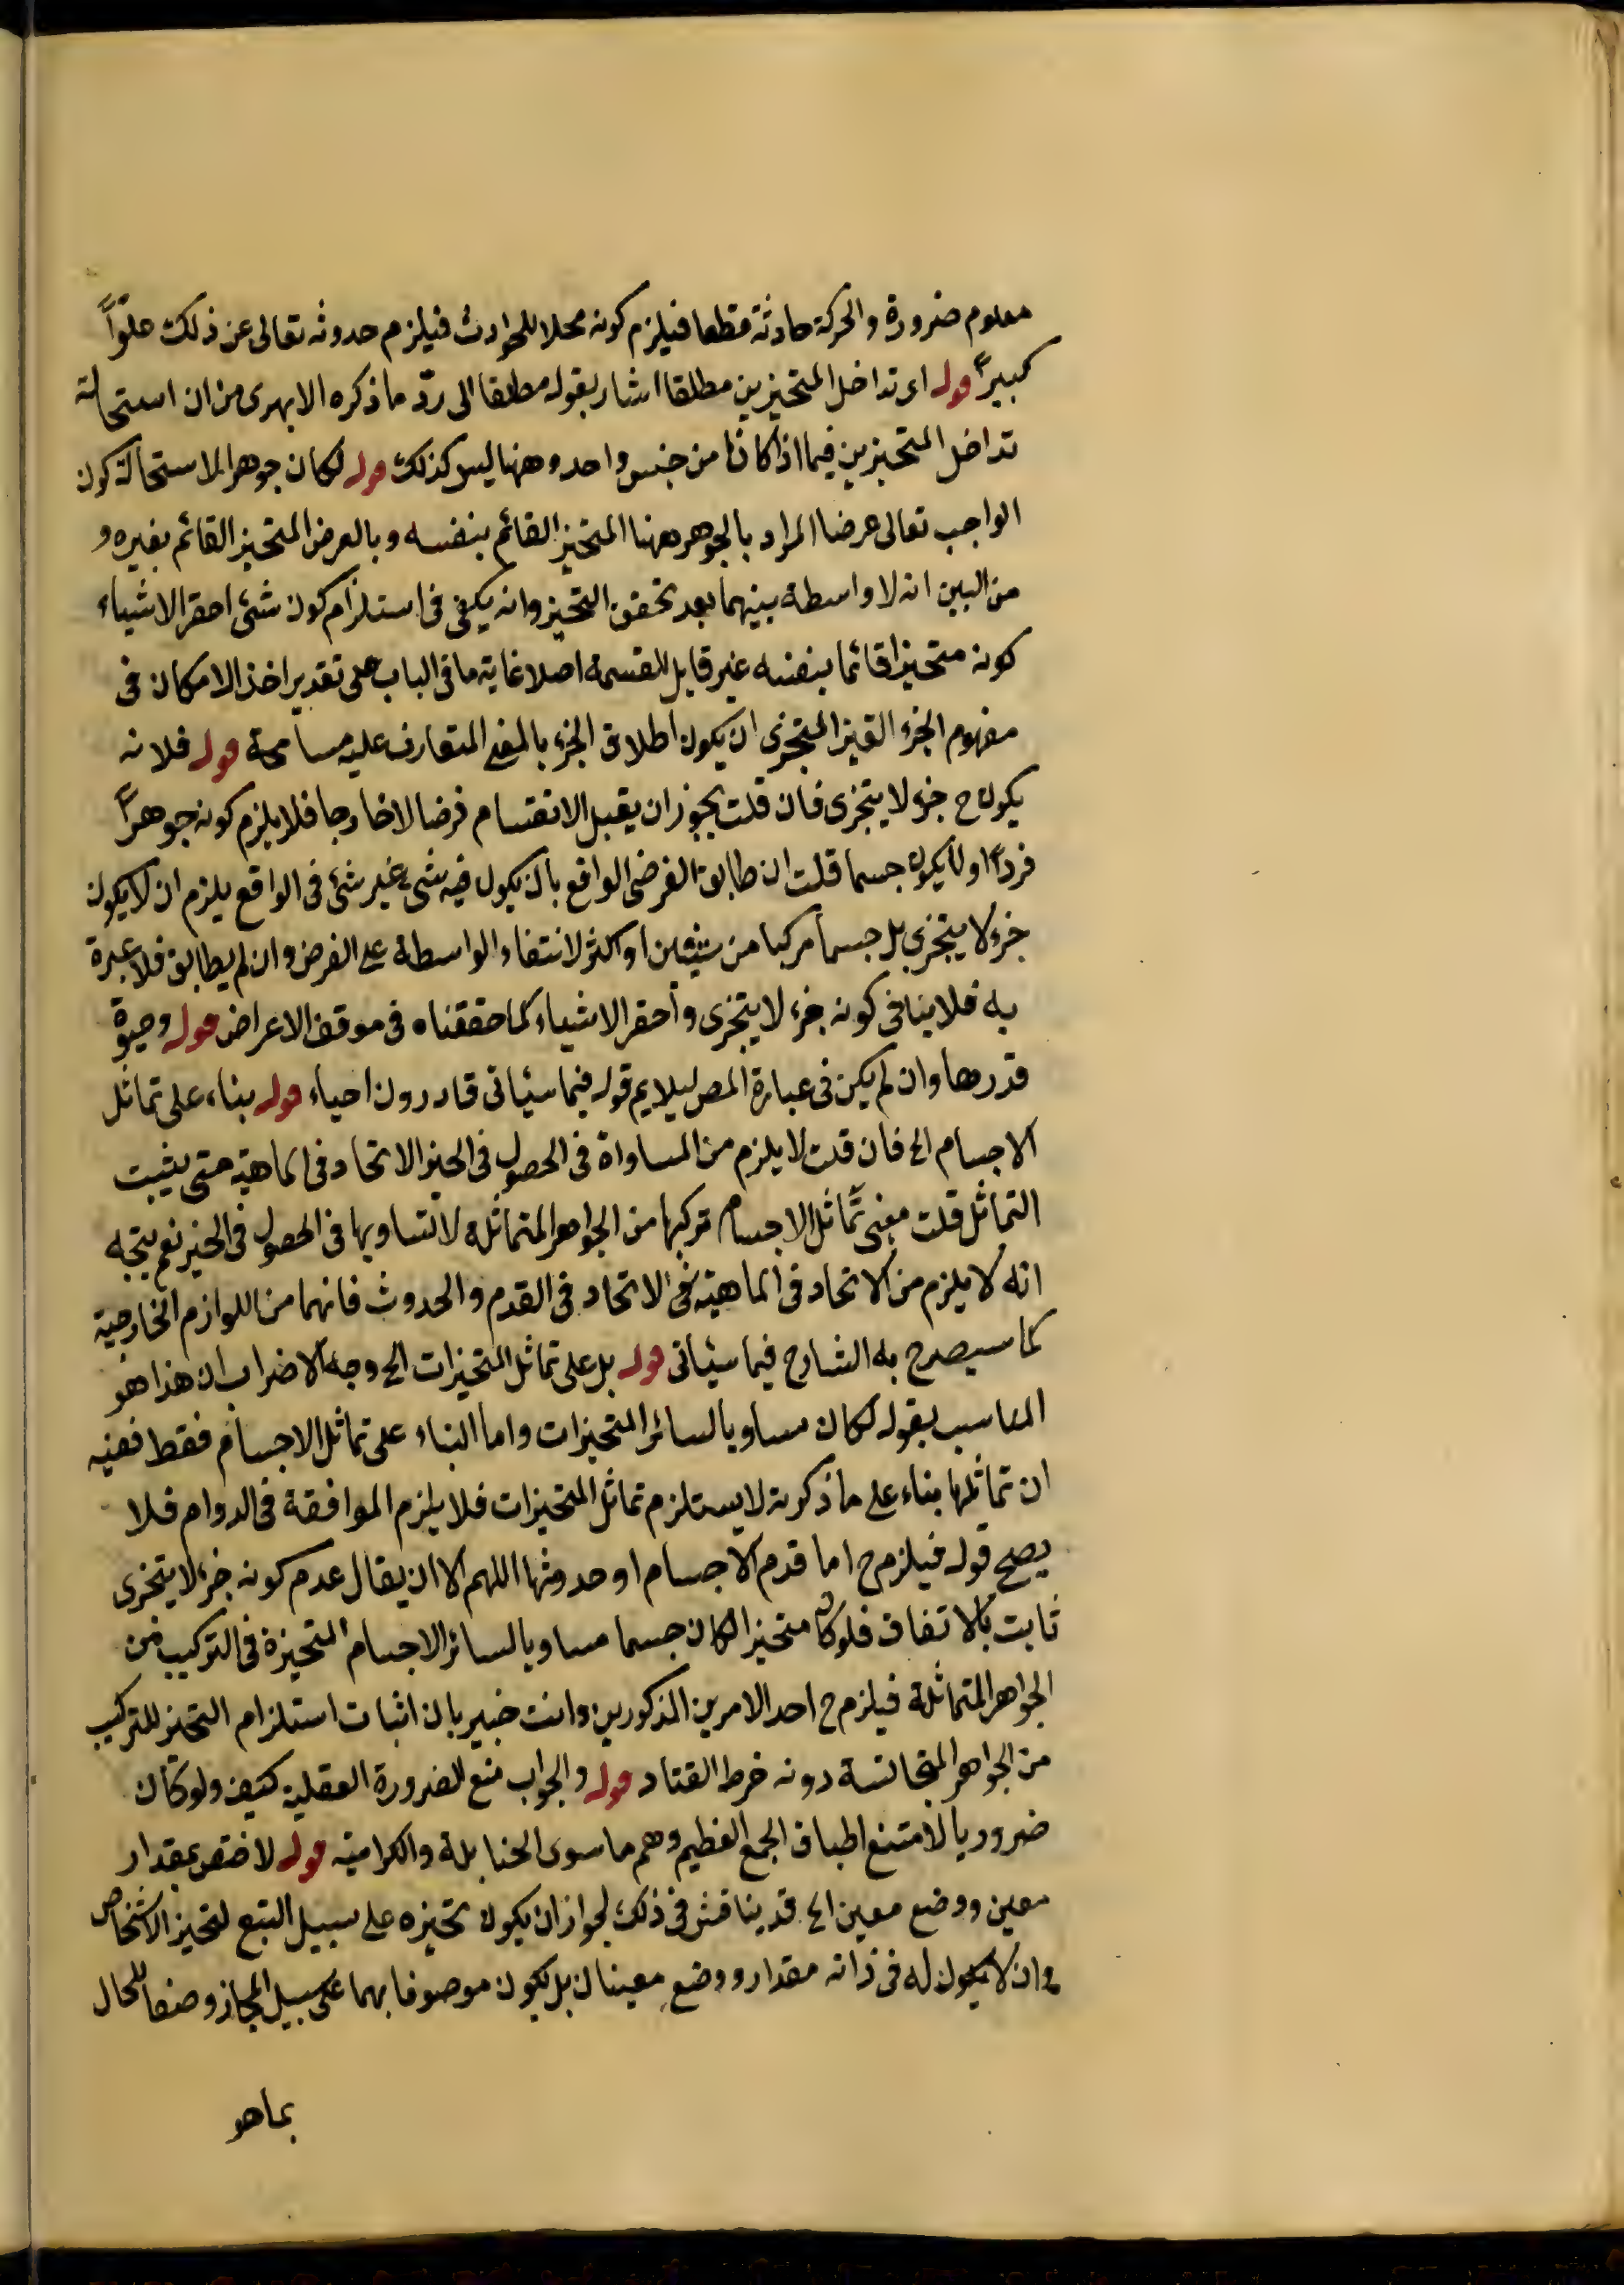 معلوم ضرورة والحركة حادثة قطعا فيلزم كونه محلا للحوادث فيلزم حدوثه تعالى عن ذلك علوّاً
كبيراً قوله اى تداخل المتحيزين مطلقا اشار بقوله مطلقا الى ردّ ما ذكره الابهرى من ان استحالة
تداخل المتحيزين فيما اذا كانا من جنس واحد وههنا ليس كذلك قوله لكان جوهرا لاستحالة كون
الواجب تعالى عرضا المراد بالجوهر ههنا المتحيز القائم بنفسه وبالعرض المتحيز القائم بغيره و
من البين انه لا واسطة بينهما بعد تحقق التحيز وانه يكفى فى استلزام كون شئ احقر الاشياء
كونه متحيزا قائما بنفسه غير قابل للقسمة اصلا غاية ما فى الباب على تقدير اخذ الامكان فى
مفهوم الجزء الغير المتجزى ان يكون اطلاق الجزء بالمعنى المتعارف عليه مسامحة قوله فلانه
يكون ح جزء لا يتجزى فان قلت يجوز ان يقبل الانقسام فرضا لا خارجا فلا يلزم كونه جوهراً
فرداً ولا يكون جسما قلت ان طابق الفرض الواقع بان يكون فيه شئ غير شئ فى الواقع يلزم ان لا يكون
جزء لا يتجزى بل جسما مركبا من شيئين او اكثر لانتفاء الواسطة على الفرض وان لم يطابق فلا عبرة
به فلا ينافى كونه جزء لا يتجزى واحقر الاشياء كما حققناه فى موقف الاعراض قوله وحيوة
قدرها وان لم يكن فى عبارة المص ليلايم قوله فيما سيأتى قادرون احياء قوله بناء على تماثل
الاجسام الخ فان قلت لا يلزم من المساواة فى الحصول فى الحيز الاتحاد فى الماهية حتى يثبت
التماثل قلت معنى تماثل الاجسام تركبها من الجواهر المتماثلة لا لتساويها فى الحصول فى الحيز نعم يتجه
انه لا يلزم من الاتحاد فى الماهية الاتحاد فى القدم والحدوث فانهما من اللوازم الخارجية
كما سيصرح به الشارح فيما سيأتى قوله بل على تماثل المتحيزات الخ وجه الاضراب ان هذا هو
المناسب بقوله لكان مساويا لسائر المتحيزات واما البناء على تماثل الاجسام فقط ففيه
ان تماثلها بناء على ما ذكرته لا يستلزم تماثل المتحيزات فلا يلزم الموافقة فى الدوام فلا
يصح قوله فيلزم ح اما قدم الاجسام او حدوثها اللهم الا ان يقال عدم كونه جزء لا يتجزى
ثابت بالاتفاق فلو كان متحيزا لكان جسما مساويا لسائر الاجسام المتحيزة فى التركيب من
الجواهر المتماثلة فيلزم ح احد الامرين المذكورين وانت خبير بان اثبات استلزام التحيز للتركيب
من الجواهر المتجانسة دونه خرط القتاد قوله والجواب منع الضرورة العقلية كيف ولو كان
ضروريا لامتنع اطباق الجمع العظيم وهم ما سوى الحنابلة والكرامية قوله لاختص بمقدار
معين ووضع معين الخ قد يناقش فى ذلك لجواز ان يكون تحيزه على سبيل التبع لتحيز الاشخاص
وان لا يكون له فى ذاته مقدار ووضع معينان بل يكون موصوفا بهما على سبيل المجاز وصفا للحال
بما هو